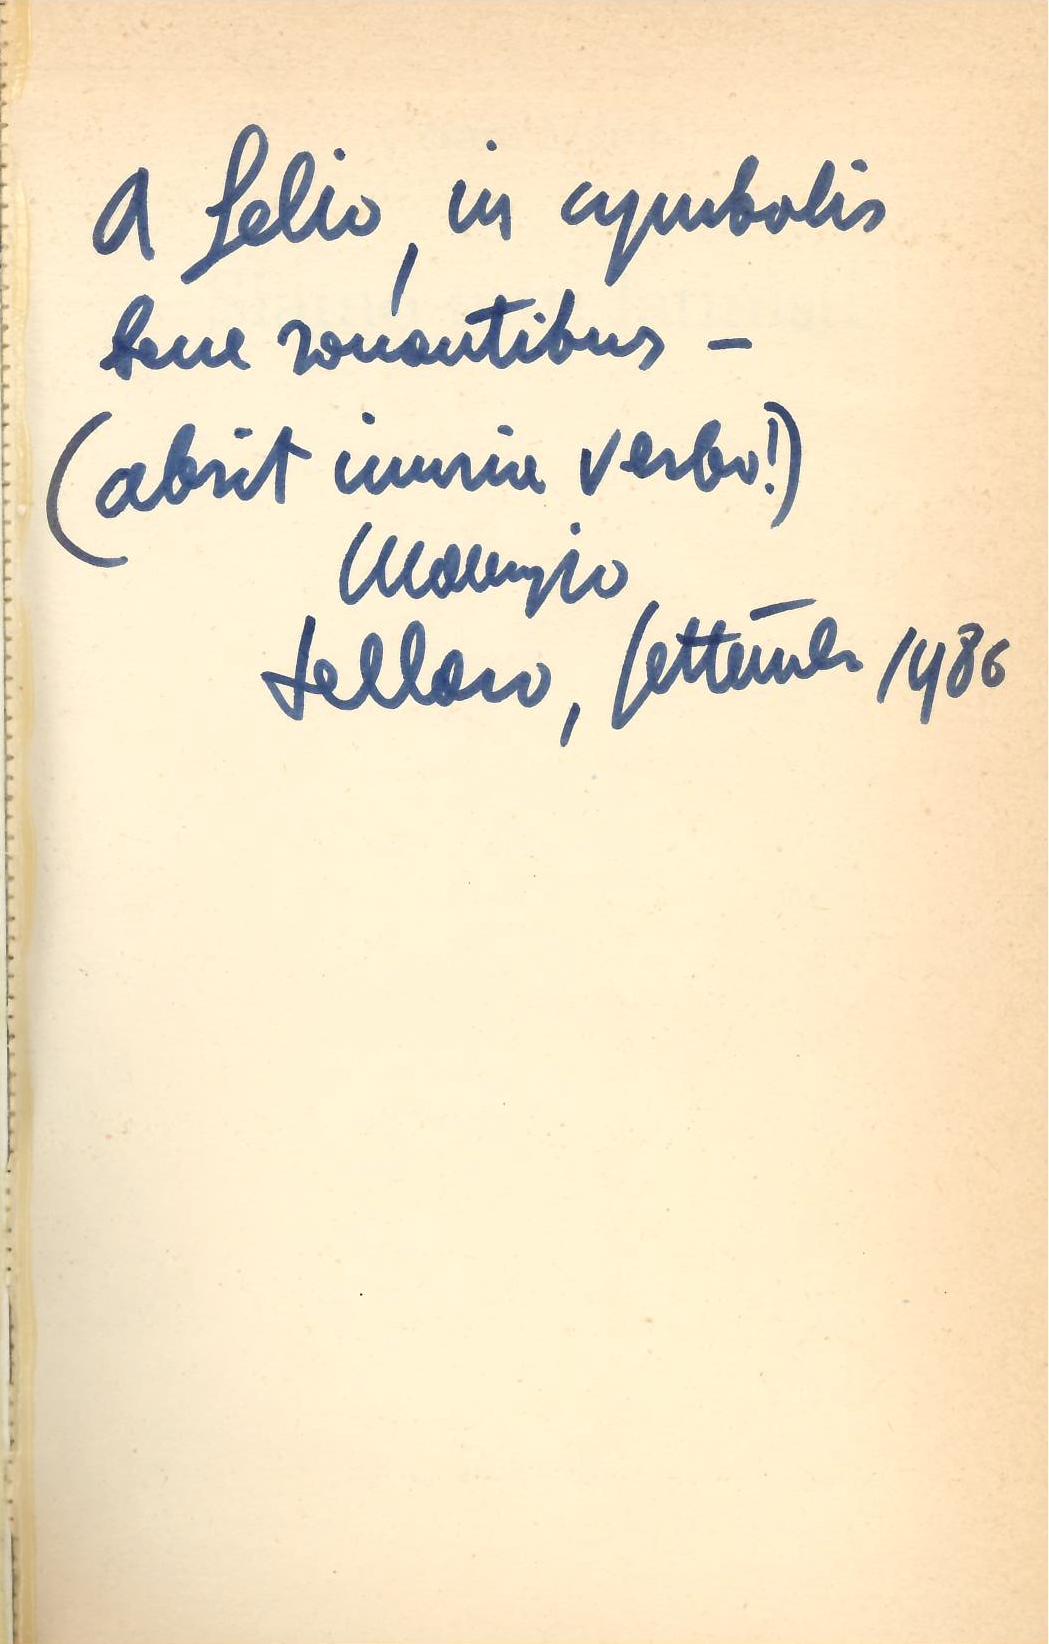 A Lelio, in cymbalis
bene sonantibus –
(absit iniuria verbo!)
Maurizio
Tellaro, settembre 1986